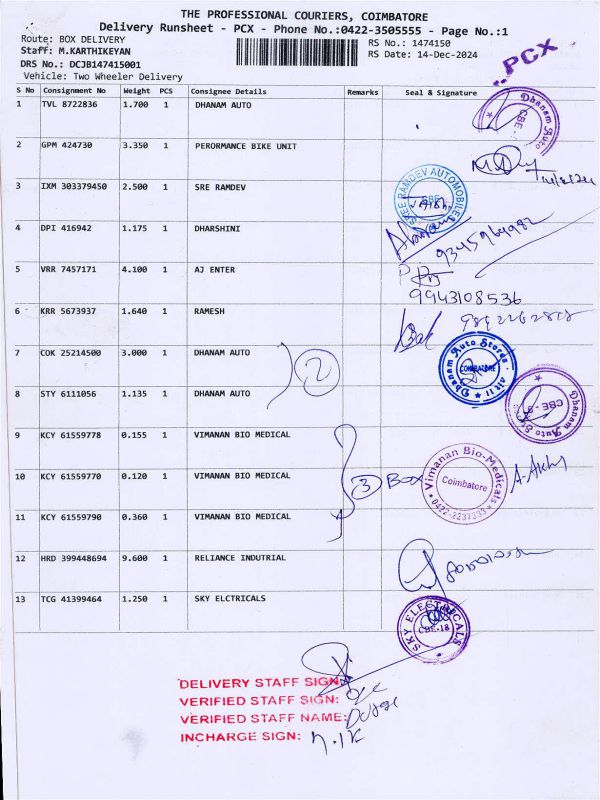 THE PROFESSIONAL COURIERS, COIMBATORE
Delivery Runsheet - PCX - Phone No.:0422-3505555 - Page No.:1
Route: BOX DELIVERY
RS No.: 1474150
Staff: M.KARTHIKEYAN
RS Date: 14-Dec-2024
DRS No.: DCJB147415001
Vehicle: Two Wheeler Delivery
PCX
S No Consignment No Weight PCS Consignee Details Remarks Seal & Signature
1 TVL 8722836 1.700 1 DHANAM AUTO
Dhanam Auto
CBE-
2 GPM 424730 3.350 1 PERORMANCE BIKE UNIT
3 IXM 303379450 2.500 1 SRE RAMDEV
SREE RAMDEV AUTOMOBILES
CBE
4 DPI 416942 1.175 1 DHARSHINI
9345964982
5 VRR 7457171 4.100 1 AJ ENTER
9943108536
6 KRR 5673937 1.640 1 RAMESH
7 COK 25214500 3.000 1 DHANAM AUTO
2
Dhanam Auto Stores
COIMBATORE
8 STY 6111056 1.135 1 DHANAM AUTO
Dhanam Auto
CBE-
9 KCY 61559778 0.155 1 VIMANAN BIO MEDICAL
10 KCY 61559770 0.120 1 VIMANAN BIO MEDICAL
3 BOX
Vimanan Bio-Medicals
Coimbatore
0422-2237333
11 KCY 61559790 0.360 1 VIMANAN BIO MEDICAL
12 HRD 399448694 9.600 1 RELIANCE INDUTRIAL
13 TCG 41399464 1.250 1 SKY ELCTRICALS
SKY ELECTRICALS
CBE-18
DELIVERY STAFF SIGN:
VERIFIED STAFF SIGN:
VERIFIED STAFF NAME:
INCHARGE SIGN: